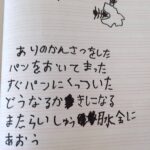 ありのかんさつをした
パンをおいてまった
すぐパンにくっついた
どうなるかきになる
またらいしゅう 会に
あおう